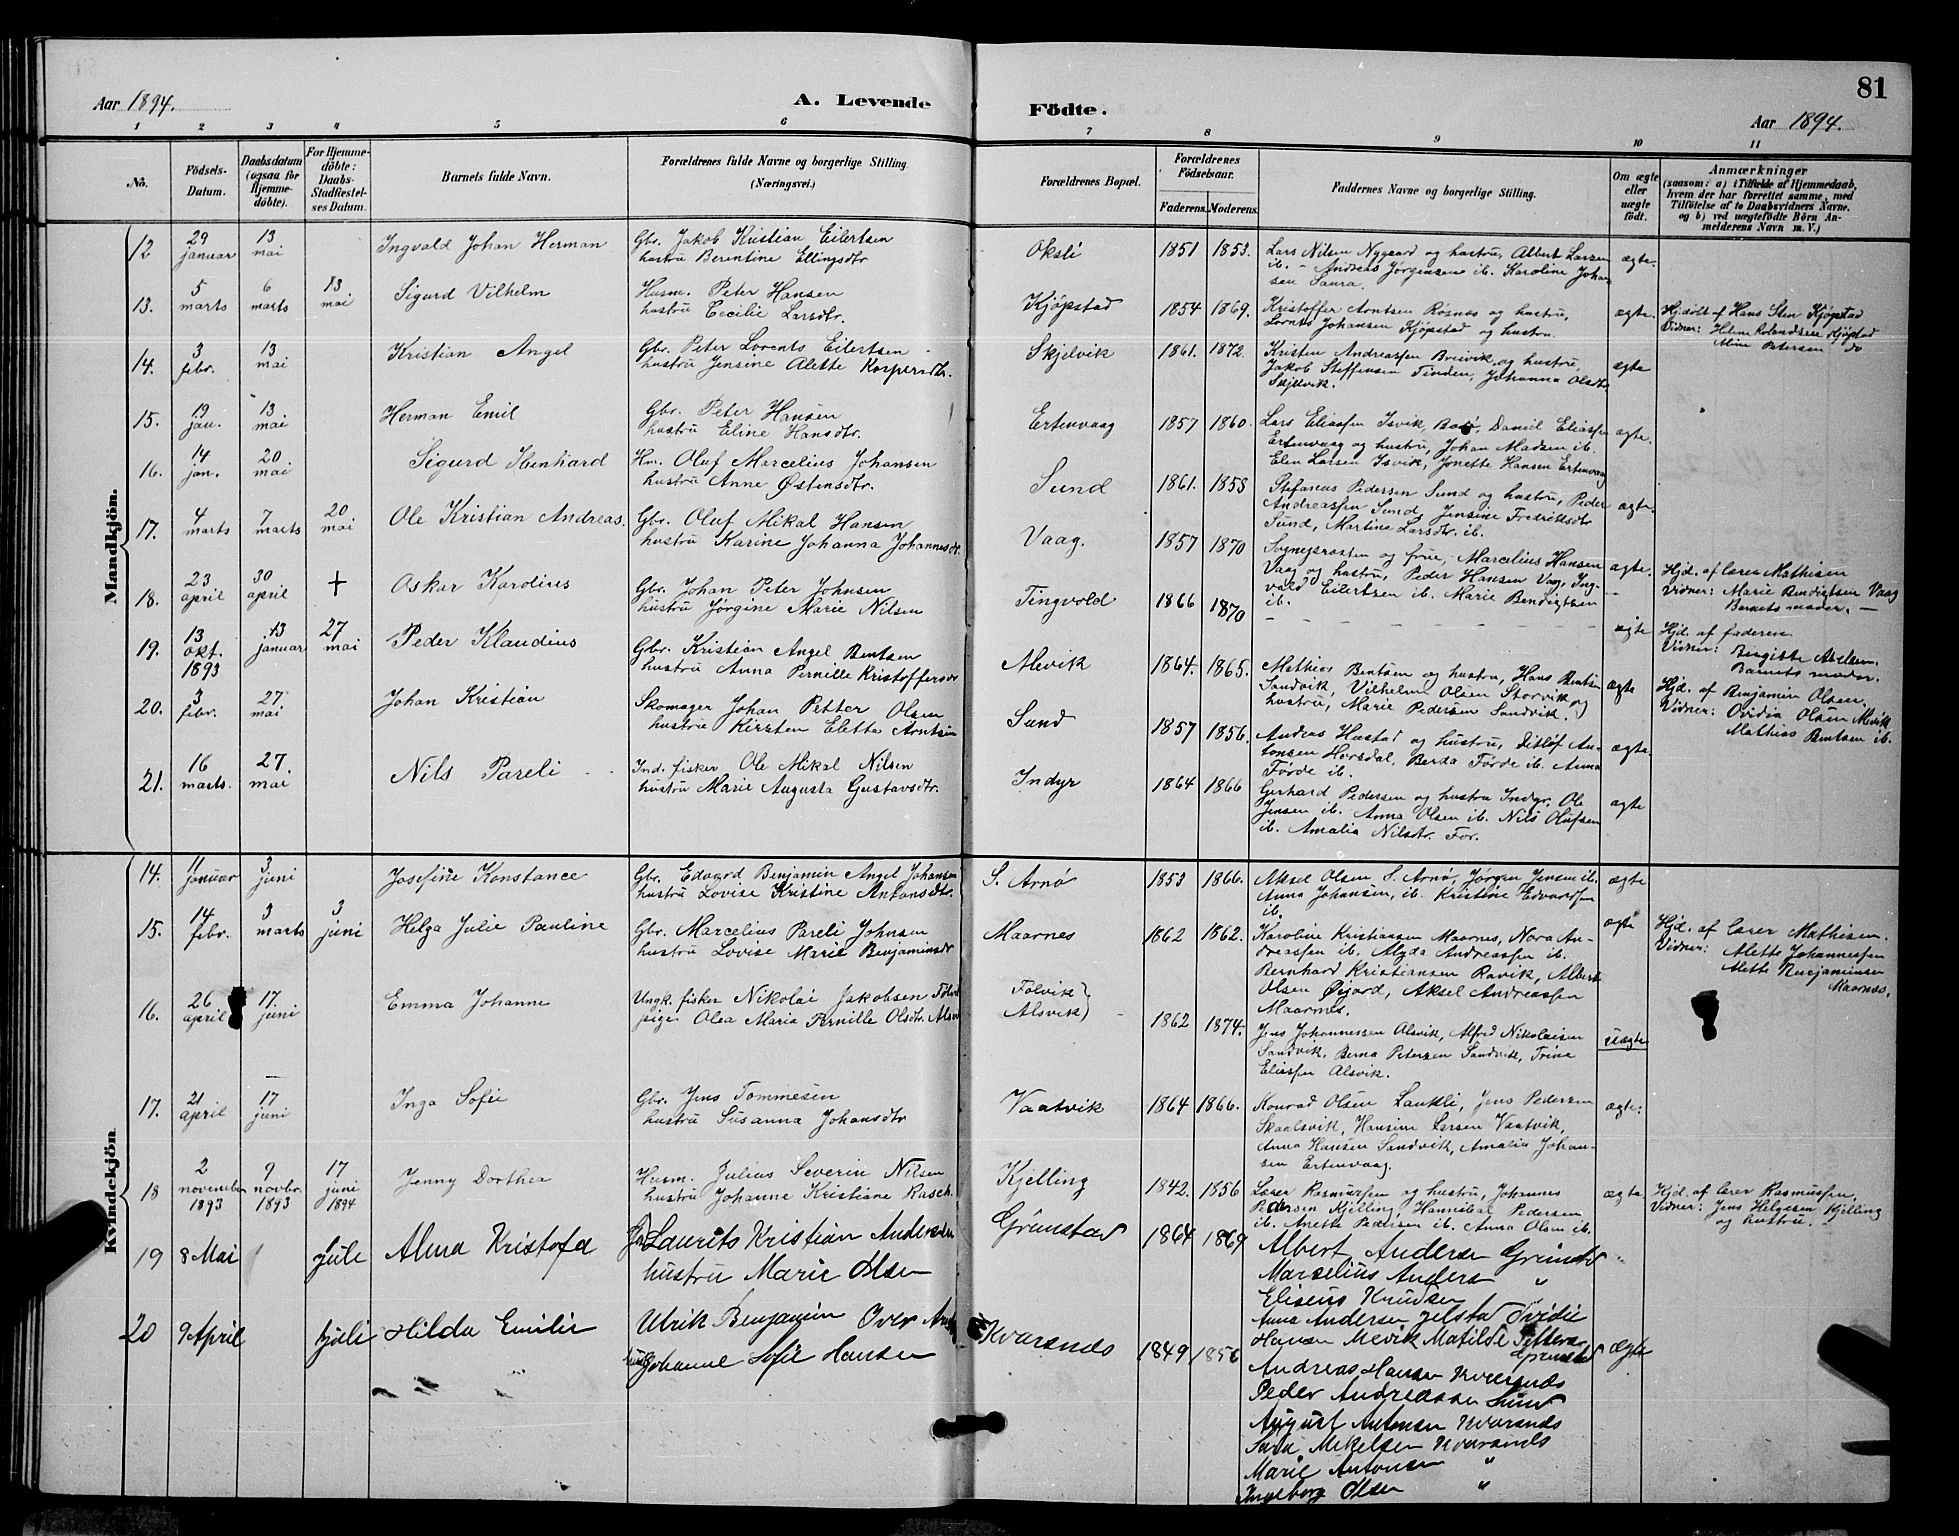 81
Aar 1894.
A. Levende
Födte.
Aar 1894.
1 2 3 4 5 6 7 8 9 10 11
No.
Födsels-Datum.
Daabsdatum (ogsaa for Hjemme-döbte).
For Hjemme-döbte: Daabs-Stadfæstel-ses Datum.
Barnets fulde Navn.
Forældrenes fulde Navne og borgerlige Stilling.
(Næringsvei.)
Forældrenes Bopæl.
Forældrenes Födselsaar.
Faderens. Moderens.
Faddernes Navne og borgerlige Stilling.
Om ægte eller uægte födt.
Anmærkninger
(saasom: a) i Tilfælde af Hjemmedaab,
hvem der har forrettet samme, med
Tilföielse af to Daabsvidners Navne.
og b) ved uægtefödte Börn An-
melderens Navn m. V.)
Mandkjön.
12 29 januar 13 mai Ingvald Johan Herman
Gbr. Jakob Kristian Eilertsen
hustru Berentine Ellingsdtr
Oksli 1851 1853.
Lars Nilsen Nygaard og hustru, Albert Larsen
ib. - Andreas Jørgensen ib. Karoline Johan-
sen Saura.
ægte.
13. 5 marts 6 marts 13 mai Sigurd Vilhelm
Husm. Peter Hansen
hustru Cecilie Larsdtr.
Kjøpstad 1854 1869.
Kristoffer Arntsen Røsnes og hustru,
Lornts Johansen Kjøpstad og hustru
ægte.
Hjdøbt af Hans Sten Kjøpstad
Vidner: Rolandsen Kjøpstad
Petersen do
14. 3 febr. 13 mai Kristian Angel
Gbr. Peter Lorents Eilertsen
hustru Jensine Alette Kaspersdtr.
Skjelvik 1861. 1872.
Kristen Andreassen Breivik og hustru,
Jakob Steffensen Tinden, Johanna Olsdtr
Skjelvik.
ægte
15. 19 jan. 13 mai Herman Emil
Gbr. Peter Hansen
hustru Eline Hansdtr.
Ertenvaag 1857 1860.
Lars Eliassen Isvik, Daniel Eliassen
Ertenvaag og hustru, Johan Madsen ib.
Elen Larsen Isvik, Jonette Hansen Ertenvaag
ægte.
16. 14 jan. 20 mai Sigurd Ibenhard
Hm. Oluf Marcelius Johansen
hustru Anne Østensdtr.
Sund 1861. 1858
Stefanus Pedersen Sund og hustru, Peder
Andreassen Sund, Jensine Fredriksdtr
Sund, Martine Larsdtr. ib.
ægte.
17. 4 marts 7 marts 20 mai Ole Kristian Andreas.
Gbr. Oluf Mikal Hansen
hustru Karine Johanna Johannesdtr.
Vaag. 1857 1870
Sogneprasten og frue, Marcelius Hansen
Vaag og hustru, Peder Hansen Vaag, Ing-
vald Eilertsen ib. Marie Bendigtsen
ib.
ægte.
Hjd. af lærer Mathisen
Vidner: Marie Bendigtsen Vaag
Barnets moder. —
18. 23 april 30 april + Oskar Karolius
Gbr. Johan Peter Johnsen
hustru Jørgine Marie Nilsen
Tingvold 1866 1870
ægte
Hjd. af faderen
Vidner: Bergitte Abelsen.
Barnets moder.
19. 13 okt. 1893 13 januar 27 mai Peder Klaudius
Gbr. Kristian Angel Bentsen
hustru Anna Pernille Kristoffersdtr
Mevik 1864. 1865.
Mathias Bentsen og hustru, Hans Bentsen
Sandvik, Vilhelm Olsen Storvik og
hustru, Marie Pedersen Sandvik.
ægte
Hjd. af Benjamin Olsen,
Vidner: Ovidia Olsen Mevik
Mathias Bentsen ib.
20. 3 febr. 27 mai Johan Kristian
Skomager Johan Petter Olsen
hustru Kirsten Elette Arntsen
Sund 1857 1856.
Andreas Hastad og hustru, Ditlöf An-
tonsen Horsdal. Berda Førde ib. Anna
Førde ib.
ægte.
21. 16 marts. 27 mai Nils Pareli
Ind. fisker Ole Mikal Nilsen
hustru Marie Augusta Gustavsdtr.
Indyr 1864 1866
Gerhard Pedersen og hustru Indyr. Ole
Jensen ib. Anna Olsen ib. Nils Olufsen
ib. Amalia Nilsdtr. For.
ægte
Kvindekjön
14. 11 januar 3 juni Josefine Konstance
Gbr. Edvard Benjamin Angel Johansen
hustru Lovise Kristine Antonsdtr.
S. Arnø 1853 1866.
Aksel Olsen S. Arnø, Jørgen Jensen ib.
Anna Johansen, ib. Kristine Edvardsen
ib.
ægte
15. 14 febr. 3 marts 3 juni Helga Julie Pauline
Gbr. Marcelius Pareli Johnsen
hustru Lovise Marie Benjaminsdtr
Maarnes 1862 1862.
Karoline Kristiansen Maarnes, Nora An-
dreassen ib. Alyda Andreassen ib.
Bernhard Kristiansen Ravik, Albert
Olsen Øijord, Aksel Andreassen
Maarnes.
ægte
Hjd. af lærer Mathisen.
Vidner: Alette Johannessen
Alette Benjaminsen
Maarnes.
16. 26 april 17 juni Emma Johanne
Ungk. fisker Nikolai Jakobsen
pige Olea Maria Pernille Olsdtr. Alsvik
Følvik
Alsvik 1862 1874.
Jens Johannessen Alsvik, Alfred Nikolaisen
Sandvik, Berna Petersen Sandvik, Trine
Eliassen Alsvik.
uægte
17. 21 april 17 juni Inga Sofie
Gbr. Jens Tommesen
hustru Susanna Johansdtr
Vaatvik 1864 1866.
Konrad Olsen Lankli, Jens Pedersen
Skaalsvik, Hansine Larsen Vaatvik,
Anna Hansen Sandvik, Amalia Johan-
sen Ertenvaag.
ægte.
18 2 november 1893 9 novbr. 1893 17 juni 1894 Jenny Dorthea
Husm. Julius Severin Nilsen
hustru Johanne Kristiane Rasch
Kjelling 1842. 1856
Lærer Rasmussen og hustru, Johannes
Pedersen Kjelling, Hannibal Pedersen
ib. Anette Pedersen ib. Anna Olsen ib.
ægte
Hjd. af lærer Rasmussen,
Vidner: Jens Helgesen Kjelling
og hustru.
19 8 Mai Jule Alma Kristofa
Laurits Kristian Andersen
hustru Marie Olsen
Grimstad 1864 1869
Albert Andersen Grimstd
Marselius Anders "
Eliseus Knudsen "
Anna Andersen Jelstad Ovidie
Hansen Mevik Matilde Petters
Grimstad
20 9 April Hilda Emilie
Ulrik Benjamin Over
Johanne Sofie Hansen
Kvarsnes 1849 1856
Andreas Hansen Kvarsnes
Peder Andreassen Sund
August Antonsen Kvarsnes
Sara Mikelsen Kvarsnes
Marie Antonsen "
Ingeborg Olsen "
ægte